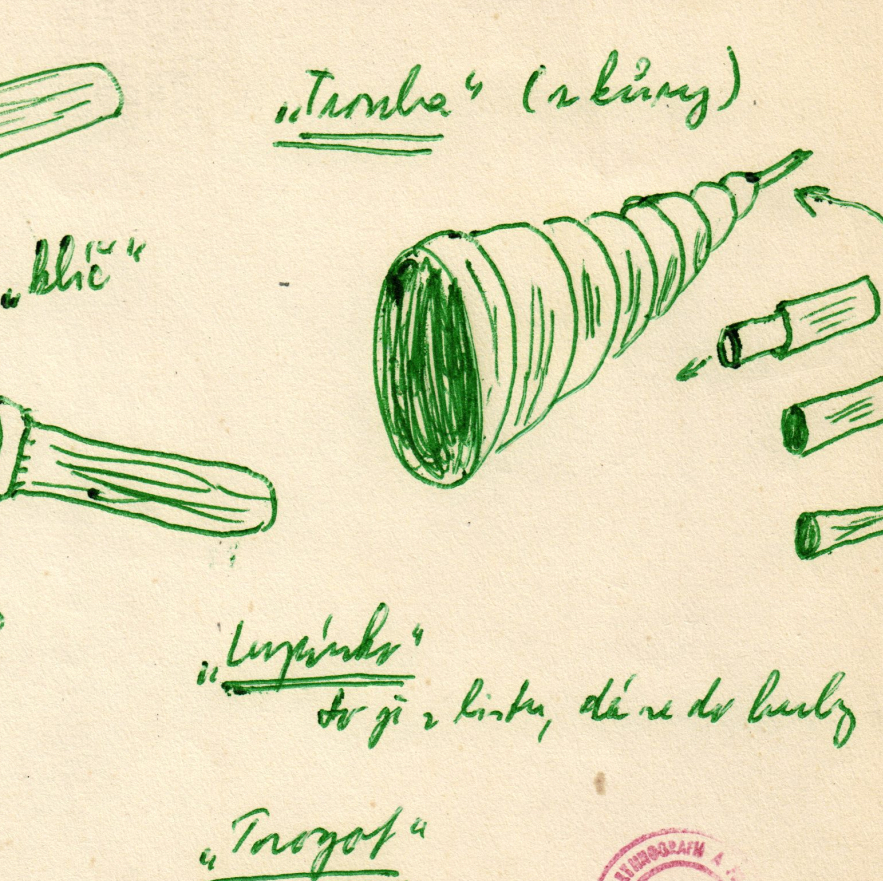 „Tromba“ (z kůry)
„klíč“
„Lupínko“
to je z listu, dá se do huby
ETHNOGRAFII A